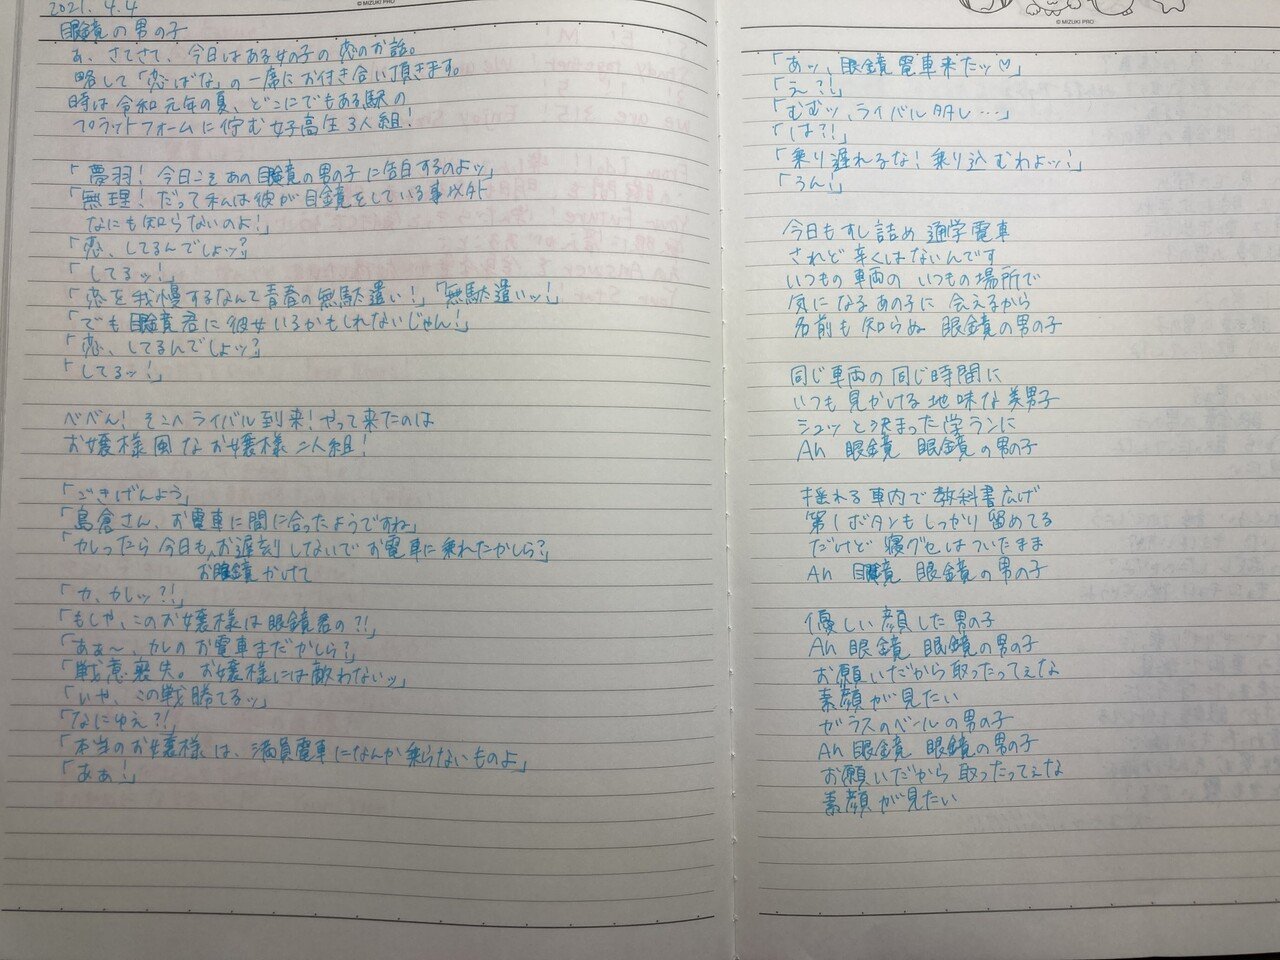 2021. 4.4
眼鏡の男の子
あ、さてさて、今日はある女の子の恋のお話。
略して「恋ばな」の一席にお付き合い頂きます。
時は令和元年の夏、どこにでもある駅の
プラットフォームに佇む女子高生3人組!
「夢羽!今日こそあの眼鏡の男の子に告白するのよッ」
「無理!だって私は彼が眼鏡をしている事以外
なにも知らないのよ!」
「恋、してるんでしょッ?」
「してるッ!」
「恋を我慢するなんて青春の無駄遣い!」「無駄遣いッ!」
「でも眼鏡君に彼女いるかもしれないじゃん!」
「恋、してるんでしょッ?」
「してるッ!」
べべん!そこへライバル到来!やって来たのは
お嬢様風なお嬢様二人組!
「ごきげんよう」
「島倉さん、お電車に間に合ったようですね」
「カレったら今日も、お遅刻しないでお電車に乗れたかしら?」
お眼鏡かけて
「カ、カレッ?!」
「もしや、このお嬢様は眼鏡君の?!」
「あぁ〜、カレのお電車まだかしら?」
「戦意喪失。お嬢様には敵わないッ」
「いや、この戦勝てるッ」
「なにゆえ?!」
「本当のお嬢様は、満員電車になんか乗らないものよ」
「あぁ!」
©MIZUKI PRO
©MIZUKI PRO
「あッ、眼鏡電車来たッ♡」
「え?!」
「むむッ、ライバル多し…」
「は?!」
「乗り遅れるな!乗り込むわよッ!」
「うん!」
今日もすし詰め 通学電車
されど辛くはないんです
いつもの車両の いつもの場所で
気になるあの子に 会えるから
名前も知らぬ 眼鏡の男の子
同じ車両の同じ時間に
いつも見かける 地味な美男子
シュッと決まった学ランに
Ah 眼鏡 眼鏡の男の子
揺れる車内で教科書広げ
第1ボタンもしっかり留めてる
だけど寝グセはついたまま
Ah 眼鏡 眼鏡の男の子
優しい顔した男の子
Ah 眼鏡 眼鏡の男の子
お願いだから取ったってぇな
素顔が見たい
ガラスのベールの男の子
Ah 眼鏡 眼鏡の男の子
お願いだから取ったってぇな
素顔が見たい